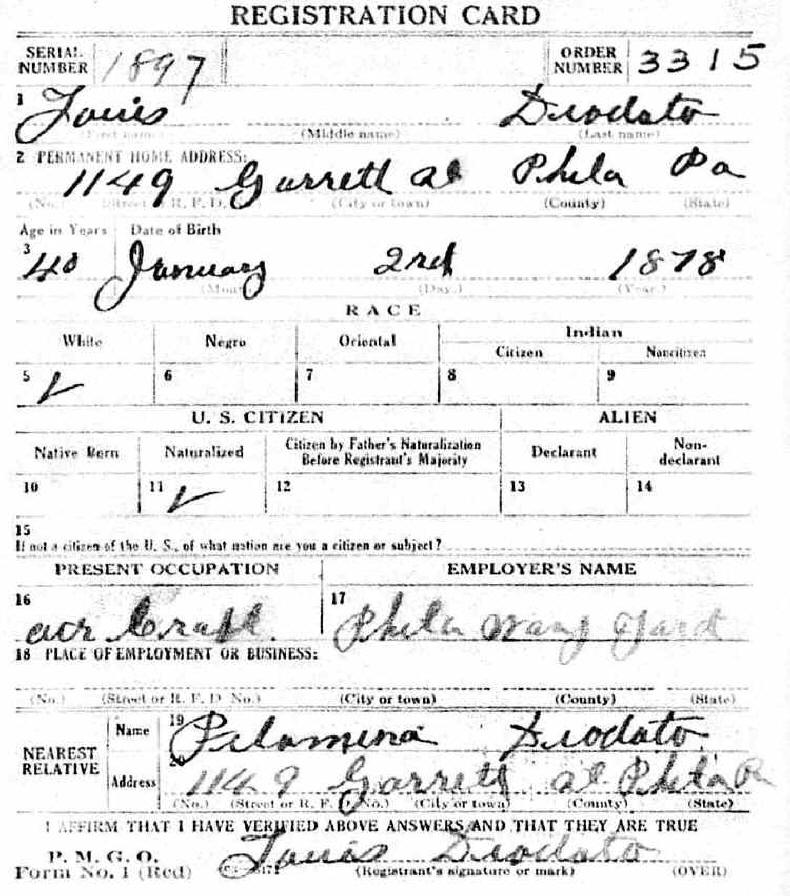 REGISTRATION CARD
SERIAL NUMBER 1897 ORDER NUMBER 3315
1 Louis Diodato
(First name) (Middle name) (Last name)
2 PERMANENT HOME ADDRESS:
1149 Garrett at Phila Pa
(No.) (Street or R. F. D.) (City or town) (County) (State)
Age in Years Date of Birth
3 40 January 2nd 1878
(Month) (Day.) (Year.)
RACE
White Negro Oriental Indian
Citizen Noncitizen
5 ✓ 6 7 8 9
U. S. CITIZEN ALIEN
Native Born Naturalized Citizen by Father's Naturalization Before Registrant's Majority Declarant Non-declarant
10 11 ✓ 12 13 14
15
If not a citizen of the U. S., of what nation are you a citizen or subject?
PRESENT OCCUPATION EMPLOYER'S NAME
16 air Craft 17 Phila Navy Yard
18 PLACE OF EMPLOYMENT OR BUSINESS:
(No.) (Street or R. F. D. No.) (City or town) (County) (State)
NEAREST RELATIVE Name 19 Filamena Diodato
Address 20 1149 Garrett at Phila Pa
(No.) (Street or R. F. D. No.) (City or town) (County) (State)
I AFFIRM THAT I HAVE VERIFIED ABOVE ANSWERS AND THAT THEY ARE TRUE
P. M. G. O.
Form No. 1 (Red) Louis Diodato
(Registrant's signature or mark) (OVER)